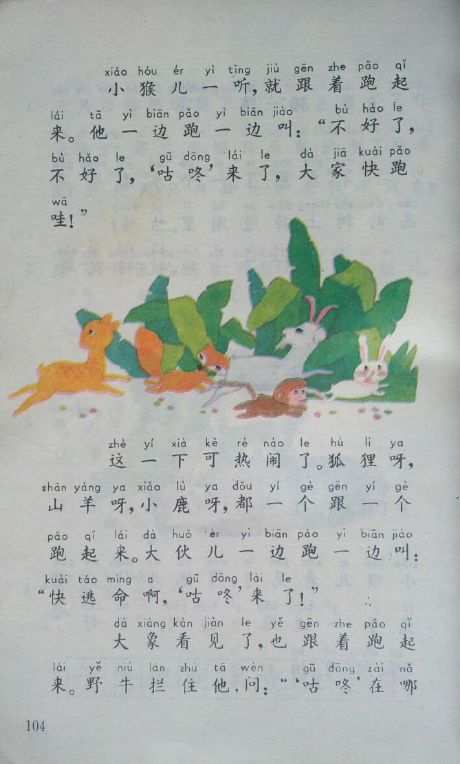 xiǎo hóu ér yì tīng jiù gēn zhe pǎo qǐ
小猴儿一听,就跟着跑起
lái tā yì biān pǎo yì biān jiào bù hǎo le
来。他一边跑一边叫:“不好了,
bù hǎo le gū dōng lái le dà jiā kuài pǎo
不好了,‘咕咚’来了,大家快跑
wā
哇!”
zhè yí xià kě rè nào le hú li ya
这一下可热闹了。狐狸呀,
shān yáng ya xiǎo lù ya dōu yí gè gēn yí gè
山羊呀,小鹿呀,都一个跟一个
pǎo qǐ lái dà huǒ ér yì biān pǎo yì biān jiào
跑起来。大伙儿一边跑一边叫:
kuài táo mìng a gū dōng lái le
“快逃命啊,‘咕咚’来了!”
dà xiàng kàn jiàn le yě gēn zhe pǎo qǐ
大象看见了,也跟着跑起
lái yě niú lán zhù tā wèn gū dōng zài nǎ
来。野牛拦住他,问:“‘咕咚’在哪
104